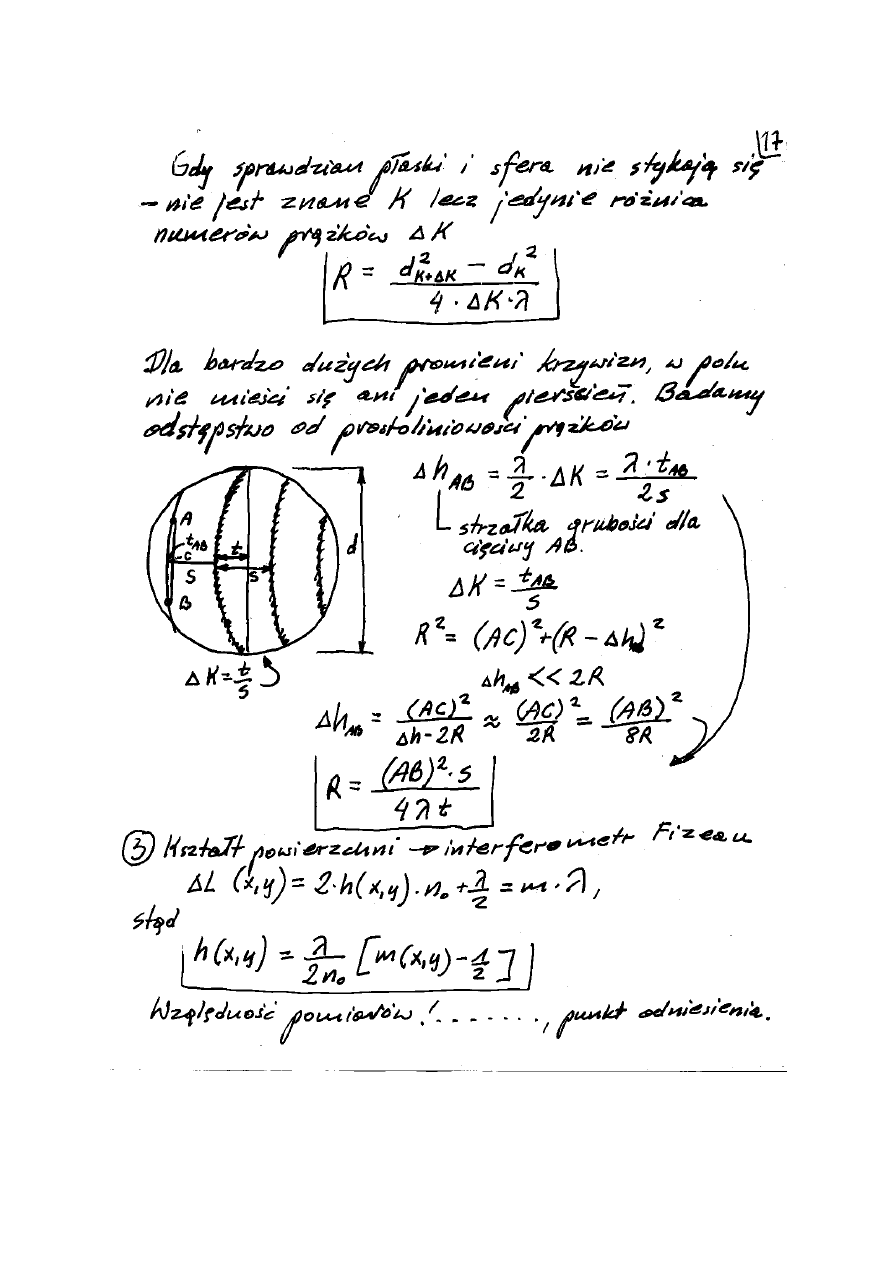 17
Gdy sprawdzian płaski i sfera nie stykają się
– nie jest znane K lecz jedynie różnica
numerów prążków ΔK
R = (d²_{K+ΔK} – d_K²) / (4 · ΔK · λ)
Dla bardzo dużych promieni krzywizn, w polu
nie mieści się ani jeden pierścień. Badamy
odstępstwo od prostoliniowości prążków
Δh_{AB} = λ/2 · ΔK = (λ · t_{AB}) / 2s
strzałka grubości dla
cięciwy AB.
A
t_{AB}
C
t
d
S
s
B
ΔK = t_{AB}/s
R² = (AC)² + (R – Δh)²
ΔK = t/s
Δh_{AB} << 2R
Δh_{AB} = (AC)² / (Δh-2R) ≈ (AC)² / 2R = (AB)² / 8R
R = ((AB)² · s) / (4λt)
③ Kształt powierzchni → interferometr Fizeau
ΔL (x,y) = 2·h(x,y)·n₀ + λ/2 = m · λ,
stąd
h(x,y) = λ/2n₀ [m(x,y) – 1/2]
Względność pomiarów !........, punkt odniesienia.